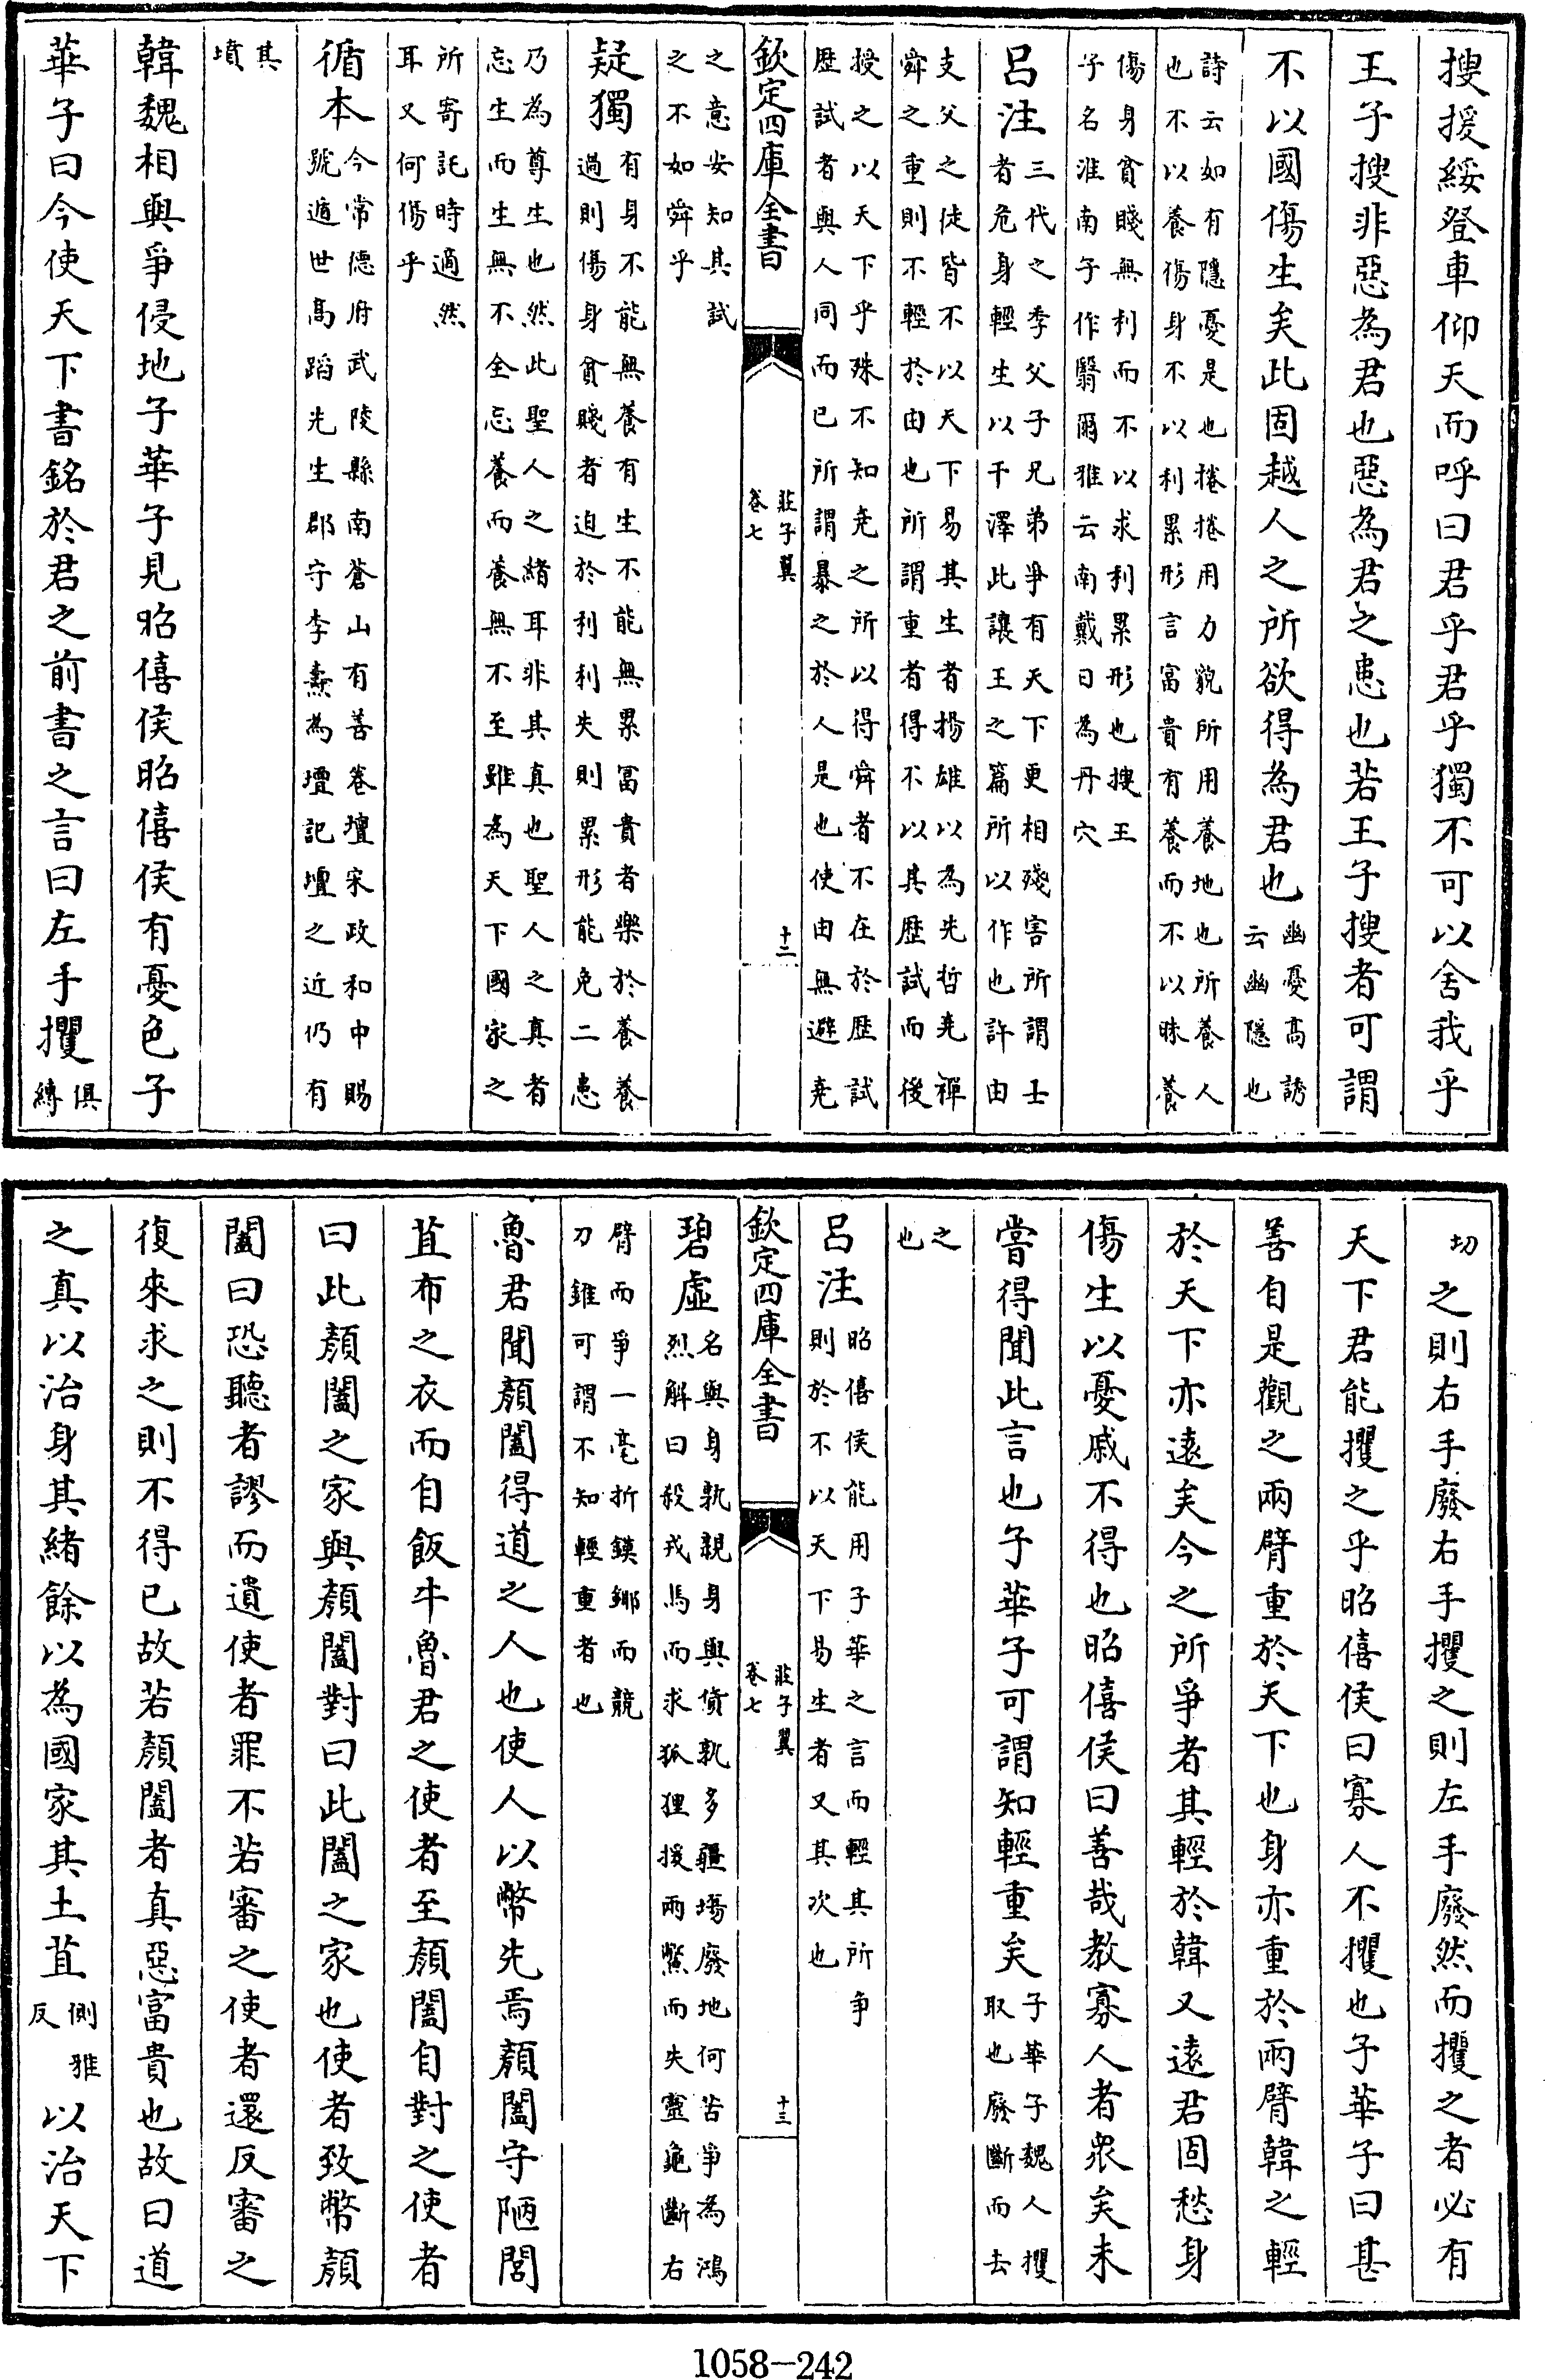 搜援綏登車仰天而呼曰君乎君乎獨不可以舍我乎
王子搜非惡為君也惡為君之患也若王子搜者可謂
不以國傷生矣此固越人之所欲得為君也幽憂高誘
云幽隱也
詩云如有隱憂是也捲捲用力貌所用養地也所養人
也不以養傷身不以利累形言富貴有養而不以昧養
傷身貧賤無利而不以求利累形也搜王
子名淮南子作翳爾雅云南戴日為丹穴
呂注三代之季父子兄弟爭有天下更相殘害所謂士
者危身輕生以干澤此讓王之篇所以作也許由
支父之徒皆不以天下易其生者揚雄以為先哲堯禪
舜之重則不輕於由也所謂重者得不以其歷試而後
授之以天下乎殊不知堯之所以得舜者不在於歷試
歷試者與人同而已所謂暴之於人是也使由無避堯
欽定四庫全書
莊子翼
卷七
十二
之意安知其試
之不如舜乎
疑獨有身不能無養有生不能無累富貴者樂於養養
過則傷身貧賤者迫於利利失則累形能免二患
乃為尊生也然此聖人之緒耳非其真也聖人之真者
忘生而生無不全忘養而養無不至雖為天下國家之
所寄託時適然
耳又何傷乎
循本今常德府武陵縣南蒼山有善卷壇宋政和中賜
號遁世高蹈先生郡守李燾為壇記壇之近仍有
其
墳
韓魏相與爭侵地子華子見昭僖侯昭僖侯有憂色子
華子曰今使天下書銘於君之前書之言曰左手攫俱
縛
切之則右手廢右手攫之則左手廢然而攫之者必有
天下君能攫之乎昭僖侯曰寡人不攫也子華子曰甚
善自是觀之兩臂重於天下也身亦重於兩臂韓之輕
於天下亦遠矣今之所爭者其輕於韓又遠君固愁身
傷生以憂戚不得也昭僖侯曰善哉教寡人者衆矣未
嘗得聞此言也子華子可謂知輕重矣子華子魏人攫
取也廢斷而去
之
也
呂注昭僖侯能用子華之言而輕其所爭
則於不以天下易生者又其次也
欽定四庫全書
莊子翼
卷七
十三
碧虛名與身孰親身與貨孰多疆場廢地何苦爭為鴻
烈解曰殺戎馬而求狐狸援兩鱉而失靈龜斷右
臂而爭一毫折鏌鎁而競
刀錐可謂不知輕重者也
魯君聞顏闔得道之人也使人以幣先焉顏闔守陋閭
苴布之衣而自飯牛魯君之使者至顏闔自對之使者
曰此顏闔之家與顏闔對曰此闔之家也使者致幣顏
闔曰恐聽者謬而遺使者罪不若審之使者還反審之
復來求之則不得已故若顏闔者真惡富貴也故曰道
之真以治身其緒餘以為國家其土苴側雅
反以治天下
1058-242